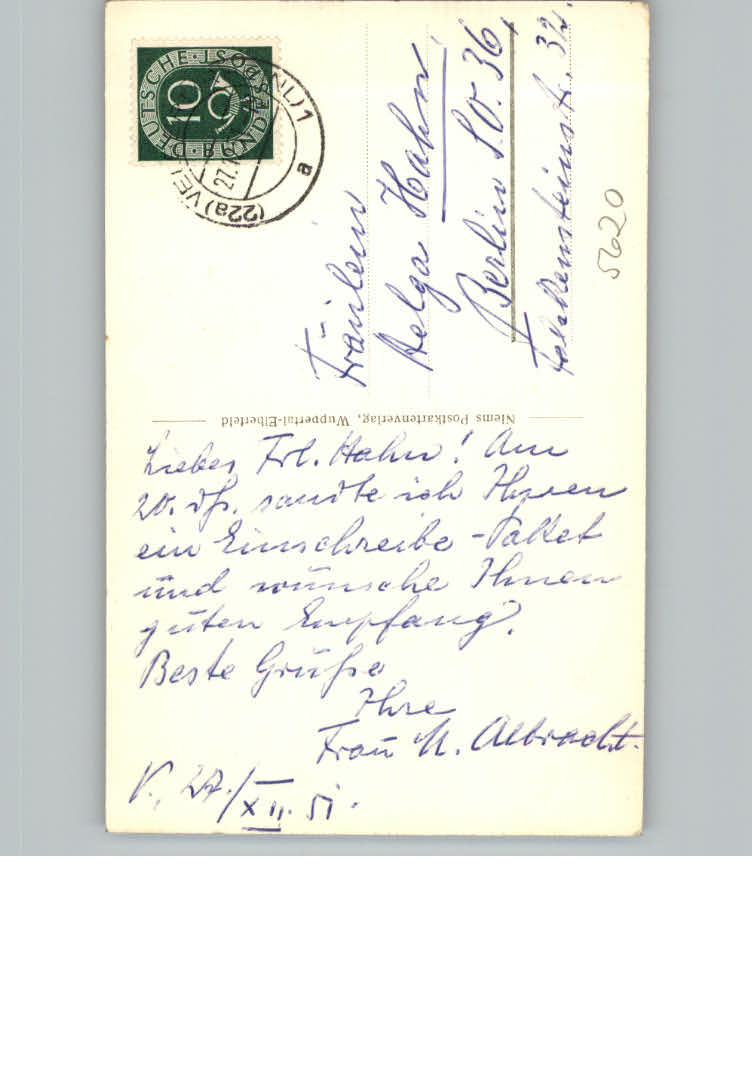 Liebes Frl. Hahn! Am
20. ds. sandte ich Ihnen
ein Einschreibe-Paket
und wünsche Ihnen
guten Empfang.
Beste Grüße
Ihre
Frau M. Albracht.
V., 27./XII. 51.
Niems Postkartenverlag, Wuppertal-Elberfeld
Fräulein
Helga Hahn
Berlin S.O. 36,
Falckensteinstr. 32.
5620
DEUTSCHE POST
BUNDES
10
(22a) VE
27.
1
a